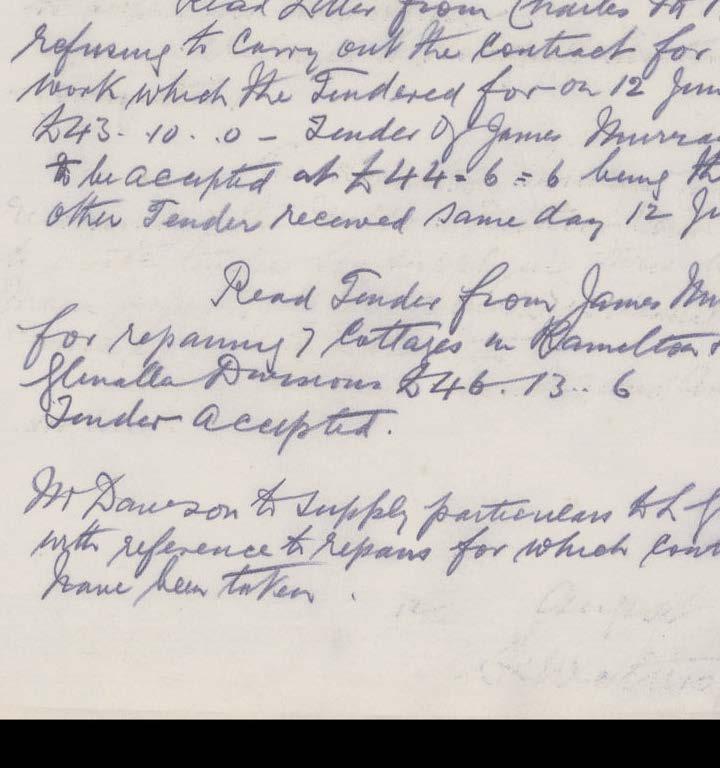 Read Letter from Charles
refusing to carry out the contract for
work which he Tendered for on 12
£43. 10. . 0 - Tender of James Murra
to be accepted at £44 = 6 = 6 being th
other Tender received same day 12
Read Tender from James Mu
for repairing 7 Cottages in Ramelton &
Glenalla Divisions £46. 13.. 6
Tender accepted.
Mr Dawson to supply particulars to L
with reference to repairs for which cont
have been taken.